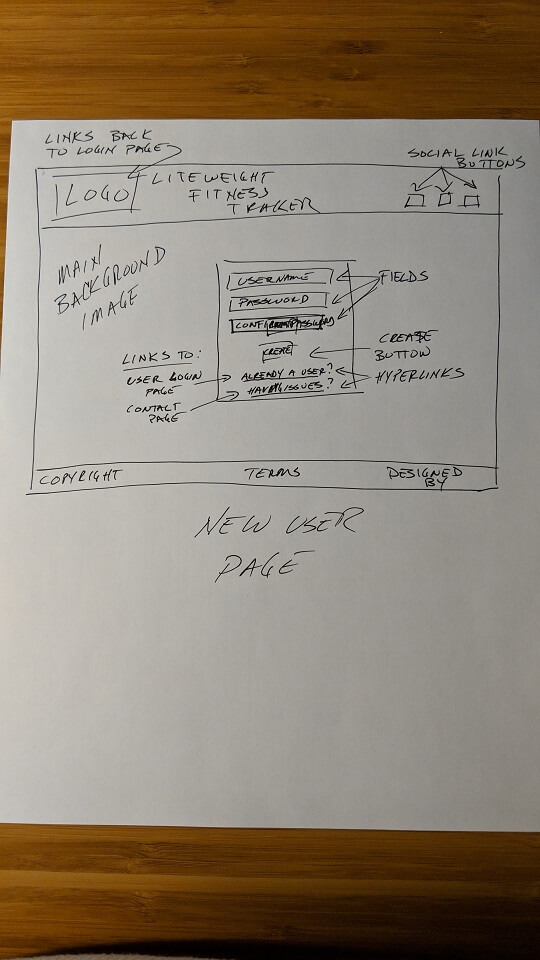 LINKS BACK
TO LOGIN PAGE
SOCIAL LINK
BUTTONS
LOGO
LITEWEIGHT
FITNESS
TRAKER
MAIN
BACKGROUND
IMAGE
USERNAME
FIELDS
PASSWORD
CONFIRM PASSWORD
CREATE
CREATE
BUTTON
LINKS TO:
USER LOGIN
PAGE
ALREADY A USER?
HYPERLINKS
HAVING ISSUES?
CONTACT
PAGE
COPYRIGHT
TERMS
DESIGNED
BY
NEW USER
PAGE